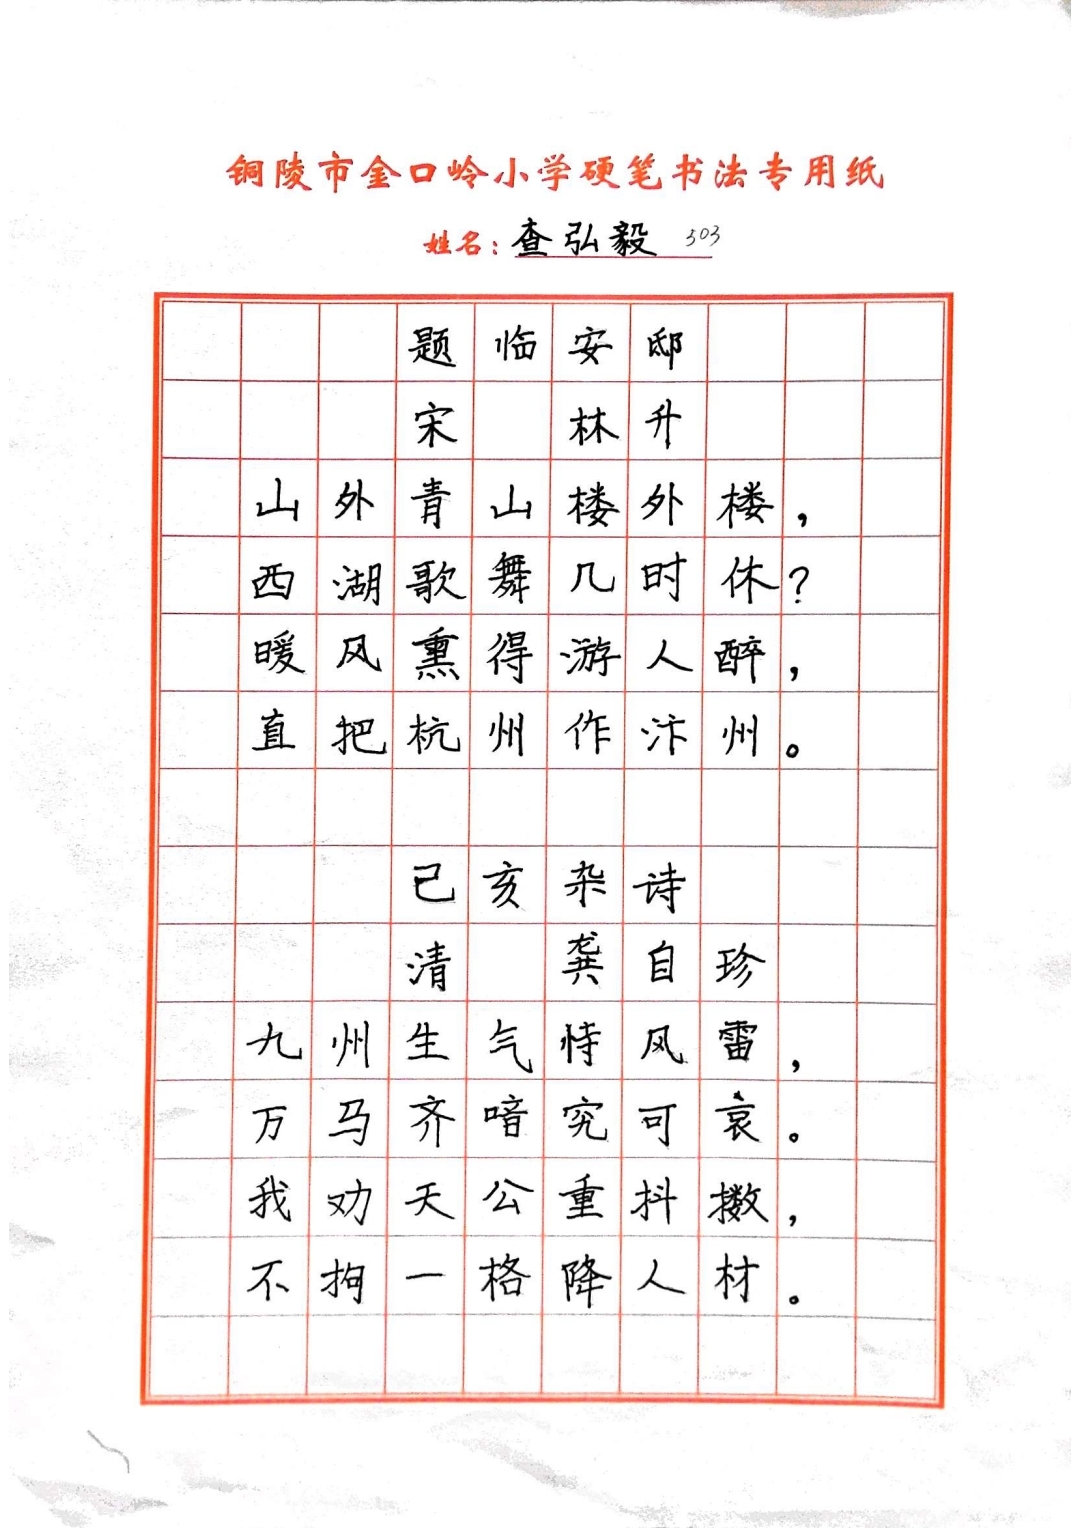 铜陵市金口岭小学硬笔书法专用纸
姓名：查弘毅 303
题临安邸
宋 林升
山外青山楼外楼，
西湖歌舞几时休？
暖风熏得游人醉，
直把杭州作汴州。
己亥杂诗
清 龚自珍
九州生气恃风雷，
万马齐喑究可哀。
我劝天公重抖擞，
不拘一格降人材。